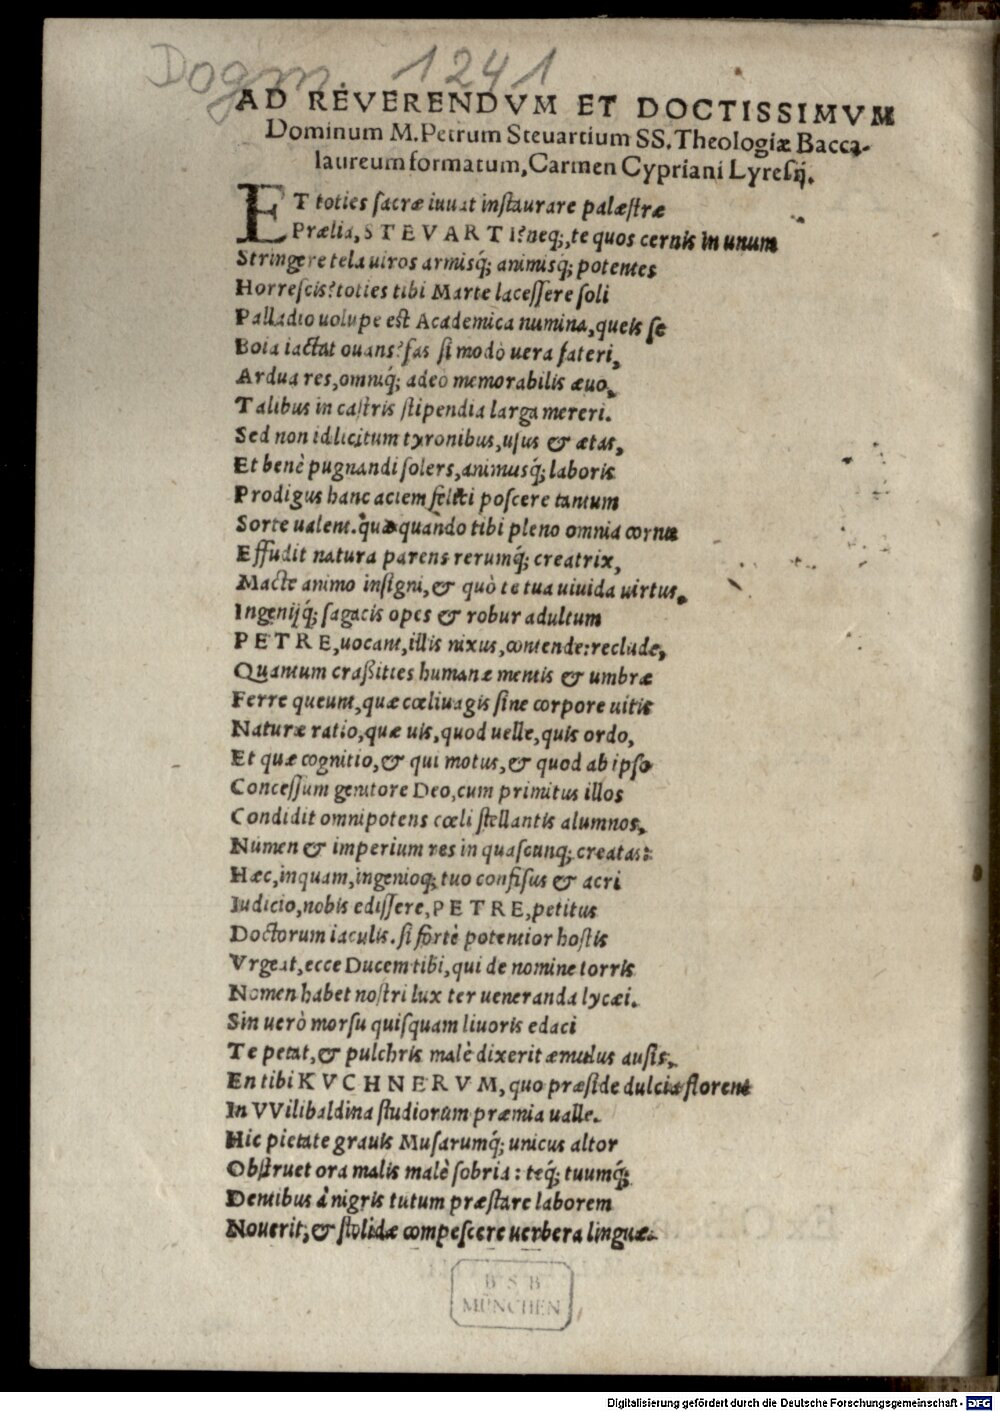 Dogm. 1241
AD REVERENDVM ET DOCTISSIMVM
Dominum M. Petrum Steuartium SS. Theologiæ Bacca-
laureum formatum, Carmen Cypriani Lyresij.
ET toties sacræ iuuat instaurare palæstræ
Prælia, STEVARTI? neq;, te quos cernis in unum
Stringere tela uiros armisq́; animisq́; potentes
Horrescis? toties tibi Marte lacessere soli
Palladio uolupe est Academica numina, queis se
Boia iactat ouans? fas si modò uera fateri,
Ardua res, omniq́; adeò memorabilis æuo,
Talibus in castris stipendia larga mereri.
Sed non id licitum tyronibus, usus & ætas,
Et benè pugnandi solers, animusq́; laboris
Prodigus hanc aciem felici poscere tantum
Sorte ualent. quæ quãdo tibi pleno omnia cornu
Effudit natura parens rerumq́; creatrix,
Macte animo insigni, & quò te tua uiuida uirtus,
Ingenijq́; sagacis opes & robur adultum
PETRE, uocant, illis nixus, contende: reclude,
Quantum craßities humanæ mentis & umbræ
Ferre queunt, quæ cœliuagis sine corpore uitis
Naturæ ratio, quæ uis, quod uelle, quis ordo,
Et quæ cognitio, & qui motus, & quod ab ipso
Concessum genitore Deo, cum primitus illos
Condidit omnipotens cœli stellantis alumnos,
Numen & imperium res in quascunq; creatas:
Hæc, inquam, ingenioq; tuo confisus & acri
Iudicio, nobis edissere, PETRE, petitus
Doctorum iaculis. si fortè potentior hostis
Vrgeat, ecce Ducem tibi, qui de nomine torris
Nomen habet nostri lux ter ueneranda lycæi.
Sin uerò morsu quisquam liuoris edaci
Te petat, & pulchris malè dixerit æmulus ausis,
En tibi KVCHNERVM, quo præside dulcia florent
In VVilibaldina studiorum præmia ualle.
Hic pietate grauis Musarumq́; unicus altor
Obstruet ora malis malè sobria: teq́; tuumq́;
Dentibus à nigris tutum præstare laborem
Nouerit, & stolidæ compescere uerbera linguæ.
BSB
MÜNCHEN
Digitalisierung gefördert durch die Deutsche Forschungsgemeinschaft - DFG